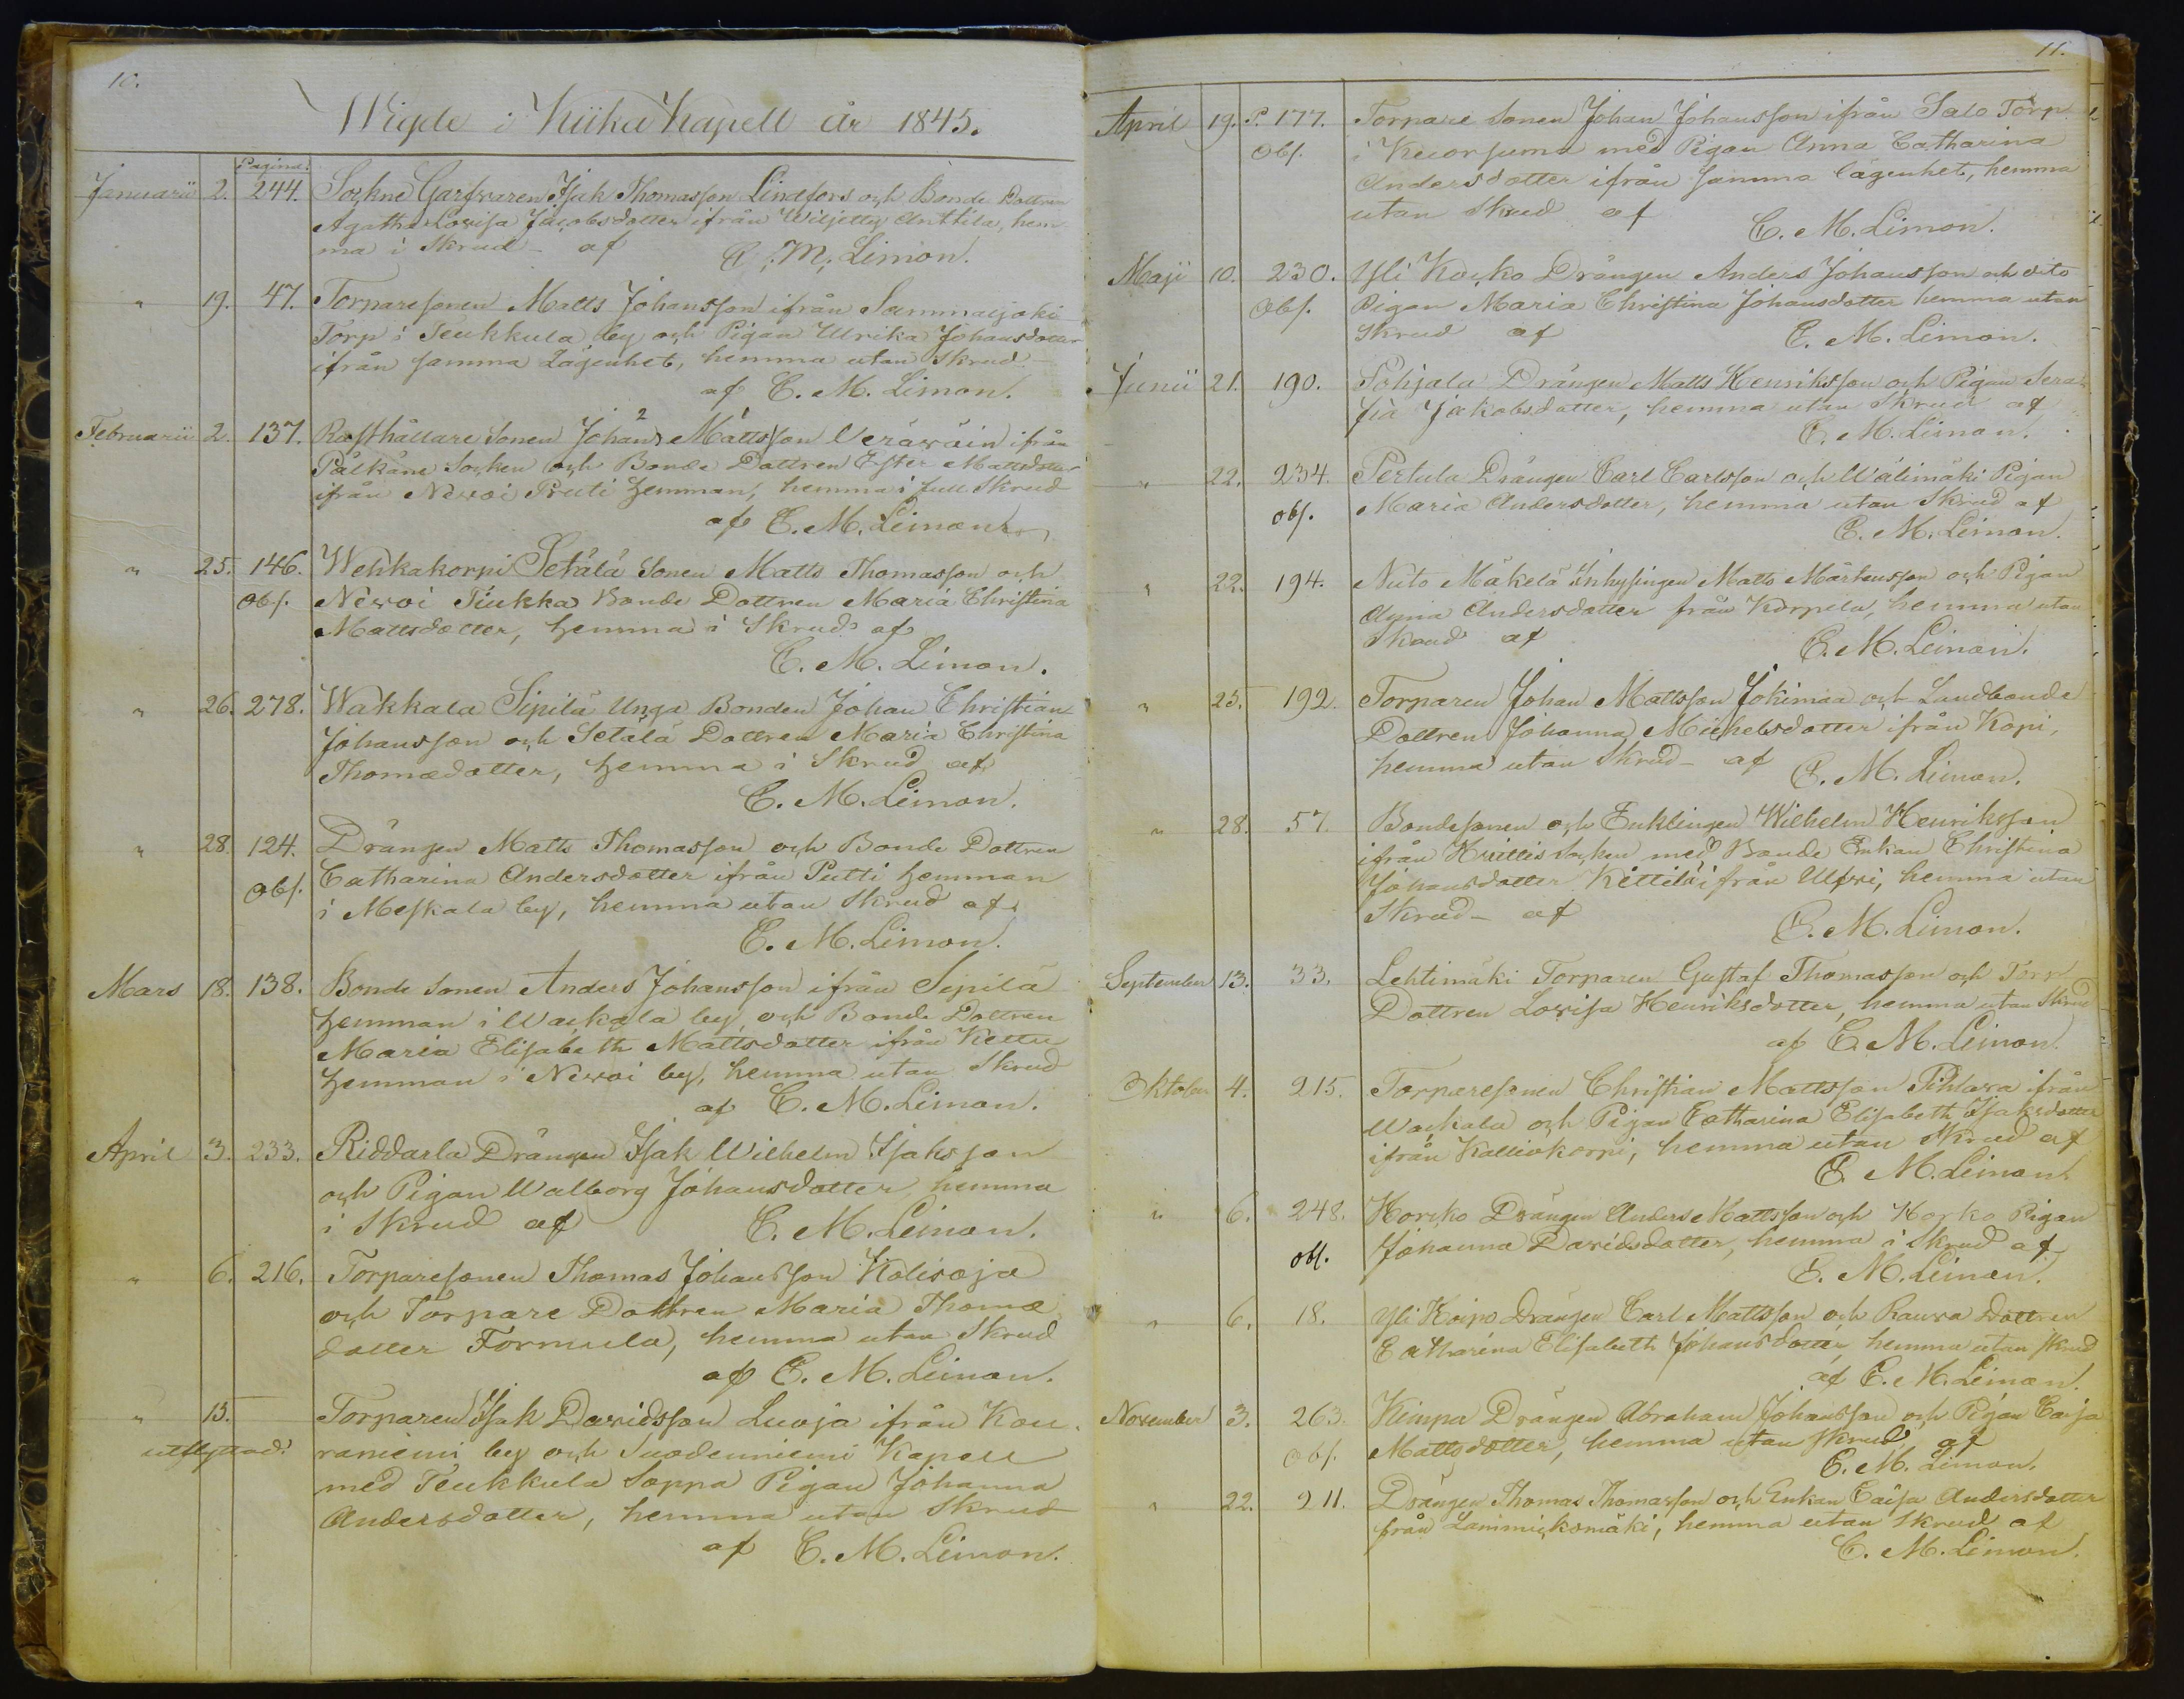 10.
Wigde i Kiika Kapell år 1845.
Pagina:
Januarii 2. 244. Sockne Garfvaren Isak Thomasson Lindfors och Bonde Dottren
Agatha Lovisa Jacobsdotter ifrån Wiljetty Anttila, hem
ma i Skrud - af C. M. Limon.
" 19. 47. Torparesonen Matts Johansson ifrån Sammaljoki
Torp i Teukkula by och Pigan Ulrika Johansdotter
ifrån samma Lägenhet, hemma utan Skrud
af C. M. Limon.
Februarii 2. 137. Rusthållare Sonen Johan 2 Matsson 1 Veräväin ifrån
Pälkäne Socken och Bonde Dottren Ester Mattsdotter
ifrån Nevoi Pruti hemman, hemma i full Skrud
af C. M. Limon.
" 25. 146. Wehkakorpi Setälä Sonen Matts Thomasson och
Obs. Nevoi Tiukka Bonde Dottren Maria Christina
Mattsdotter, hemma i Skrud af
C. M. Limon.
" 26. 278. Wakkala Sipilä Unga Bonden Johan Christian
Johansson och Setälä Dottren Maria Christina
Thomædotter, hemma i Skrud af
C. M. Limon.
" 28. 124. Drängen Matts Thomasson och Bonde Dottren
Obs. Catharina Andersdotter ifrån Putti hemman
i Meskala by, hemma utan Skrud af
C. M. Limon.
Mars 18. 138. Bonde Sonen Anders Johansson ifrån Sipilä
hemman i Wackala by och Bonde Dottren
Maria Elisabeth Mattsdotter ifrån Kettu
hemman i Nevoi by, hemma utan Skrud
af C. M. Limon.
April 3. 233. Riddarla Drängen Isak Wilhelm Isaksson
och Pigan Walborg Johansdotter hemma
i Skrud af C. M. Limon.
" 6. 216. Torparesonen Thomas Johansson Kalisoja
och Torpare Dottren Maria Thomæ
dotter Formula, hemma utan Skrud
af C. M. Limon.
" 15. Torparen Isak Davidsson Luoja ifrån Kou
utflyttad! raniemi by och Suodenniemi Kapell
med Teukkula Soppa Pigan Johanna
Andersdotter, hemma utan Skrud
af C. M. Limon.
11.
April 19. P. 177. Torpare Sonen Johan Johansson ifrån Salo Torp
Obs. i Kuorsuma med Pigan Anna Catharina
Andersdotter ifrån samma lägenhet, hemma
utan Skrud af C. M. Limon.
Maji 10. 230. Yli Kocko Drängen Anders Johansson och dito
Obs. Pigan Maria Christina Johansdotter hemma utan
Skrud af C. M. Limon.
Junii 21. 190. Pohjala Drängen Matts Henriksson och Pigan Sera
fia Jakobsdotter, hemma utan Skrud af
C. M. Limon.
" 22. 234. Pertula Drängen Carl Carlsson och Wälimäki Pigan
obs. Maria Andersdotter, hemma utan Skrud af
C. M. Limon.
" 22. 194. Nuto Mäkelä Inhysingen Matts Mårtensson och Pigan
Anna Andersdotter från Korpela, hemma utan
Skrud af C. M. Limon.
" 25. 192. Torparen Johan Mattsson Jokimaa och Landbonde
Dottren Johanna Michelsdotter ifrån Kopi,
hemma utan Skrud - af C. M. Limon.
" 28. 57. Bondesonen och Enklingen Wilhelm Henriksson
ifrån Huittis Socken med Bonde Enkan Christina
Johansdotter Kittilä ifrån Ulvi, hemma utan
Skrud - af C. M. Limon.
September 13. 33. Lehtimäki Torparen Gustaf Thomasson och Torp
Dottren Lovisa Henriksdotter, hemma utan Skrud
af C. M. Limon.
Oktober 4. 215. Torparesonen Christian Mattsson Pihlava ifrån
Wackala och Pigan Catharina Elisabeth Isaksdotter
ifrån Kalliokorpi, hemma utan Skrud af
C. M. Limon.
" 6. 248. Horcko Drängen Anders Mattsson och Horko Pigan
obs. Johanna Davidsdotter, hemma i Skrud af
C. M. Limon.
" 6. 18. Yli Koipo Drängen Carl Mattsson och Rauva Dottren
Catharina Elisabeth Johansdotter, hemma utan Skrud
af C. M. Limon.
November 3. 263. Kimpa Drängen Abraham Johansson och Pigan Caisa
Obs. Mattsdotter, hemma utan Skrud af
C. M. Limon.
" 22. 211. Drängen Thomas Thomasson och Enkan Caisa Andersdotter
från Lammicksmäki, hemma utan Skrud af
C. M. Limon.